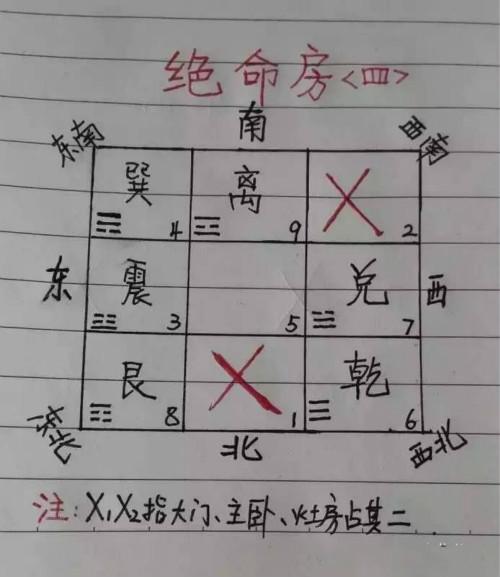 绝命房<四>
南
东南 西南
巽 离 X
4 9 2
东 震 兑 西
3 5 7
艮 X 乾
8 1 6
东北 北 西北
注:X₁X₂指大门、主卧、灶房占其二